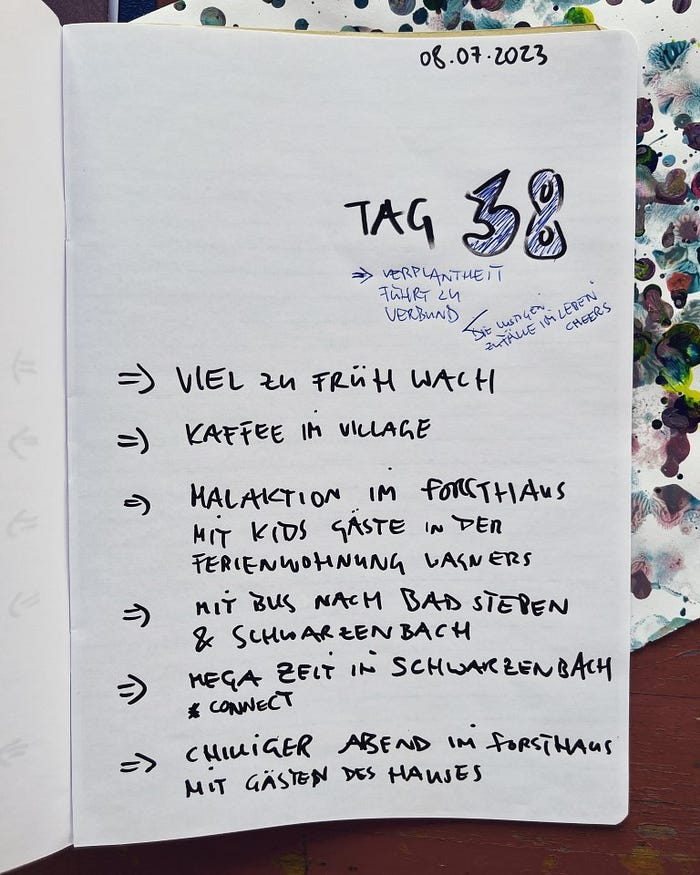 08.07.2023
TAG 38
=> VERPLANTHEIT
FÜHRT ZU
VERBUND
DIE LUSTIGEN
ZUFÄLLE IM LEBEN
CHEERS
=> VIEL ZU FRÜH WACH
=> KAFFEE IM VILLAGE
=> MALAKTION IM FORSTHAUS
MIT KIDS GÄSTE IN DER
FERIENWOHNUNG WAGNERS
=> MIT BUS NACH BAD STEBEN
& SCHWARZENBACH
=> MEGA ZEIT IN SCHWARZENBACH
* CONNECT
=> CHILLIGER ABEND IM FORSTHAUS
MIT GÄSTEN DES HAUSES